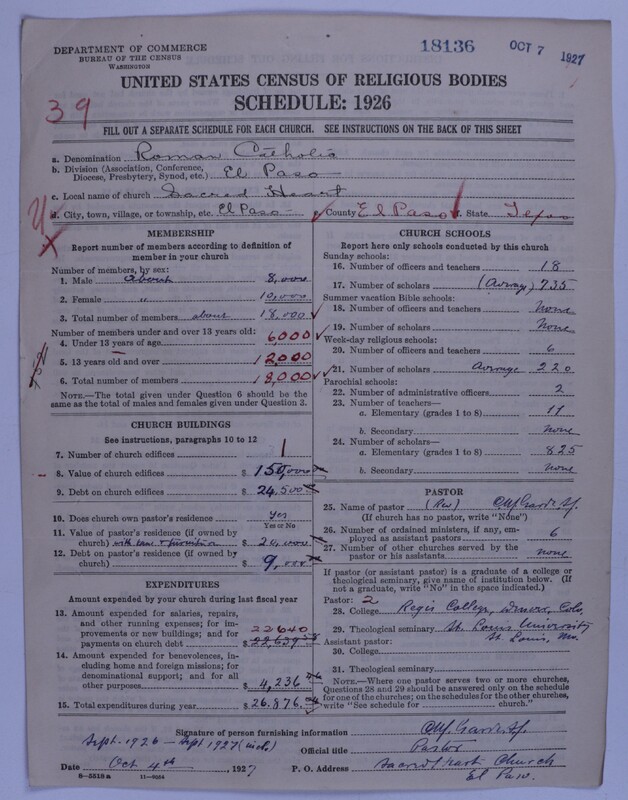 DEPARTMENT OF COMMERCE
BUREAU OF THE CENSUS
WASHINGTON
18136 OCT 7 1927
UNITED STATES CENSUS OF RELIGIOUS BODIES
SCHEDULE: 1926
39
FILL OUT A SEPARATE SCHEDULE FOR EACH CHURCH. SEE INSTRUCTIONS ON THE BACK OF THIS SHEET
a. Denomination Roman Catholic
b. Division (Association, Conference, Diocese, Presbytery, Synod, etc.) El Paso
c. Local name of church Sacred Heart
d. City, town, village, or township, etc. El Paso County El Paso State Texas
MEMBERSHIP
Report number of members according to definition of
member in your church
Number of members, by sex:
1. Male about 8,000
2. Female " 10,000
3. Total number of members about 18,000
Number of members under and over 13 years old:
4. Under 13 years of age 6,000
5. 13 years old and over 12000
6. Total number of members 18,000
NOTE.—The total given under Question 6 should be
same as the total of males and females given under Question 3.
CHURCH BUILDINGS
See instructions, paragraphs 10 to 12
7. Number of church edifices 1
8. Value of church edifices $ 150,000
9. Debt on church edifices $ 24,500
10. Does church own pastor's residence yes
Yes or No
11. Value of pastor's residence (if owned by
church) $ 20,000
12. Debt on pastor's residence (if owned by
church) $ 9,000
EXPENDITURES
Amount expended by your church during last fiscal year
13. Amount expended for salaries, repairs,
and other running expenses; for im-
provements or new buildings; and for 22640
payments on church debt $ 22,639
14. Amount expended for benevolences, in-
cluding home and foreign missions; for
denominational support; and for all
other purposes $ 4,236
15. Total expenditures during year $ 26,876
CHURCH SCHOOLS
Report here only schools conducted by this church
Sunday schools:
16. Number of officers and teachers 18
17. Number of scholars (Average) 735
Summer vacation Bible schools:
18. Number of officers and teachers None
19. Number of scholars None
Week-day religious schools:
20. Number of officers and teachers 6
21. Number of scholars Average 220
Parochial schools:
22. Number of administrative officers 2
23. Number of teachers—
a. Elementary (grades 1 to 8) 11
b. Secondary none
24. Number of scholars—
a. Elementary (grades 1 to 8) 825
b. Secondary none
PASTOR
25. Name of pastor (Rev)
(If church has no pastor, write "None")
26. Number of ordained ministers, if any, em-
ployed as assistant pastors 6
27. Number of other churches served by the
pastor or his assistants none
If pastor (or assistant pastor) is a graduate of a college or
theological seminary, give name of institution below. (If
not a graduate, write "No" in the space indicated.)
Pastor: 2
28. College Regis College, Denver, Colo.
29. Theological seminary St. Louis University
Assistant pastor: St Louis, Mo.
30. College
31. Theological seminary
NOTE.—Where one pastor serves two or more churches,
Questions 28 and 29 should be answered only on the schedule
for one of the churches; on the schedules for the other churches,
write "See schedule for church."
Signature of person furnishing information
Sept. 1926 - Sept 1927 (incl.) Official title Pastor
Date Oct 4th, 1927 P. O. Address Sacred Heart Church
6—5518a 11—9054 El Paso.